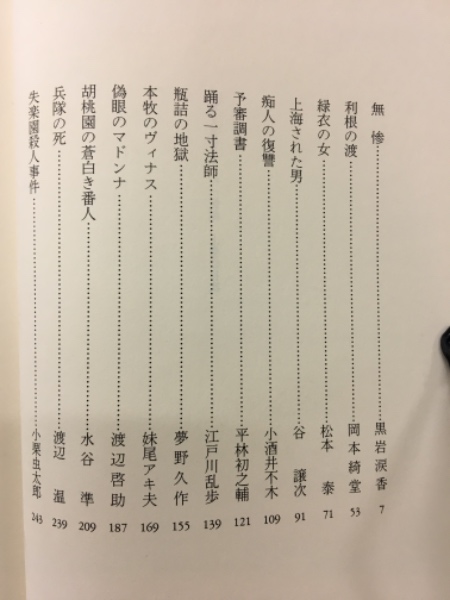 無惨………………黒岩涙香 7
利根の渡………………岡本綺堂 53
緑衣の女………………松本 泰 71
上海された男………………谷 譲次 91
痴人の復讐………………小酒井不木 109
予審調書………………平林初之輔 121
踊る一寸法師………………江戸川乱歩 139
瓶詰の地獄………………夢野久作 155
本牧のヴィナス………………妹尾アキ夫 169
偽眼のマドンナ………………渡辺啓助 187
胡桃園の蒼白き番人………………水谷 準 209
兵隊の死………………渡辺 温 239
失楽園殺人事件………………小栗虫太郎 243